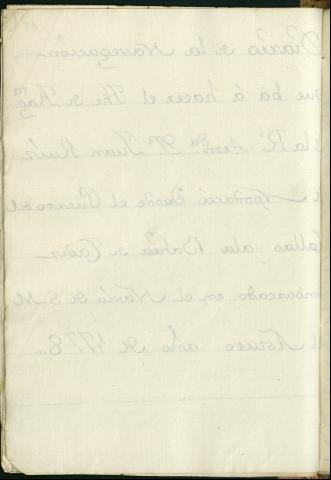 Diario de la Navegacion
que bá á hacer el The de Frag.ta
de la R.l Arm.da Dn. Juan Ruiz
de Apodaca Desde el Puerto del
Callao ala Bahia de Cadiz
embarcado en el Navio de S.M.
el Astuto año de 1778